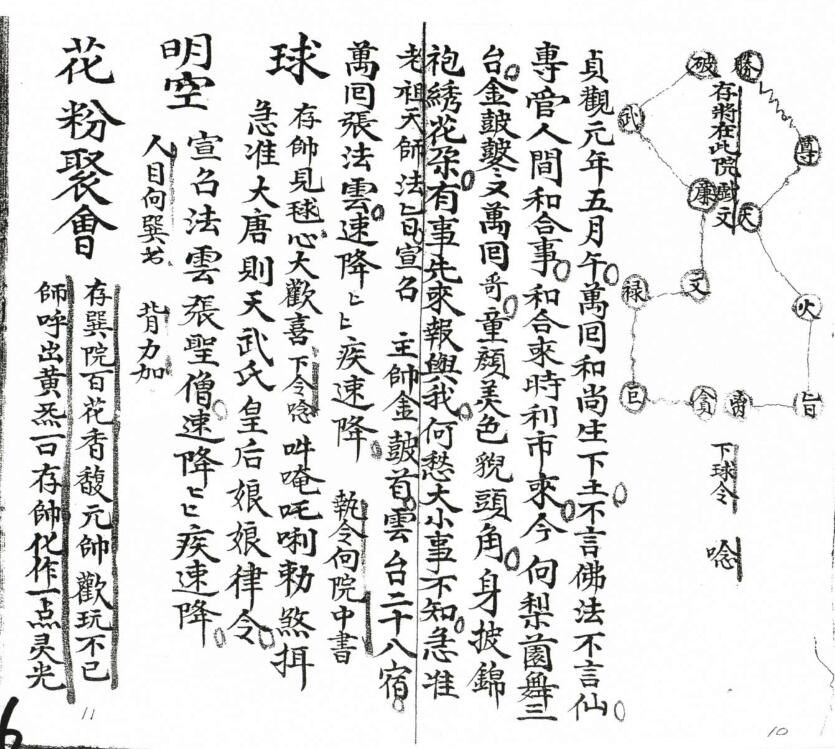 勝
尊
天
火
旨
貪
巨
禄
文
廉
武
破
存將在此院 文
下球令 唸
貞觀元年五月午萬囘和尚生下土不言佛法不言仙
專管人間和合事和合來時利市來今向梨園舞三
台金鼓鼕又萬囘哥童顏美色貌頭角身披錦
袍綉花朶有事先來報與我何愁大小事不知急准
老祖天師法旨宣召 主帥金鼓首雲台二十八宿
萬囘張法雲速降ヒヒ疾速降 執令向院中書
球 存帥見球心大歡喜 下令唸 吽唵吒唎勅煞
急准大唐則天武氏皇后娘娘律令
明空 宣召法雲張聖僧速降ヒヒ疾速降
人目向巽书 背力加
花粉聚會 存巽院百花香馥元帥歡玩不已
師呼出黄炁一口存帥化作一点灵光
10
11